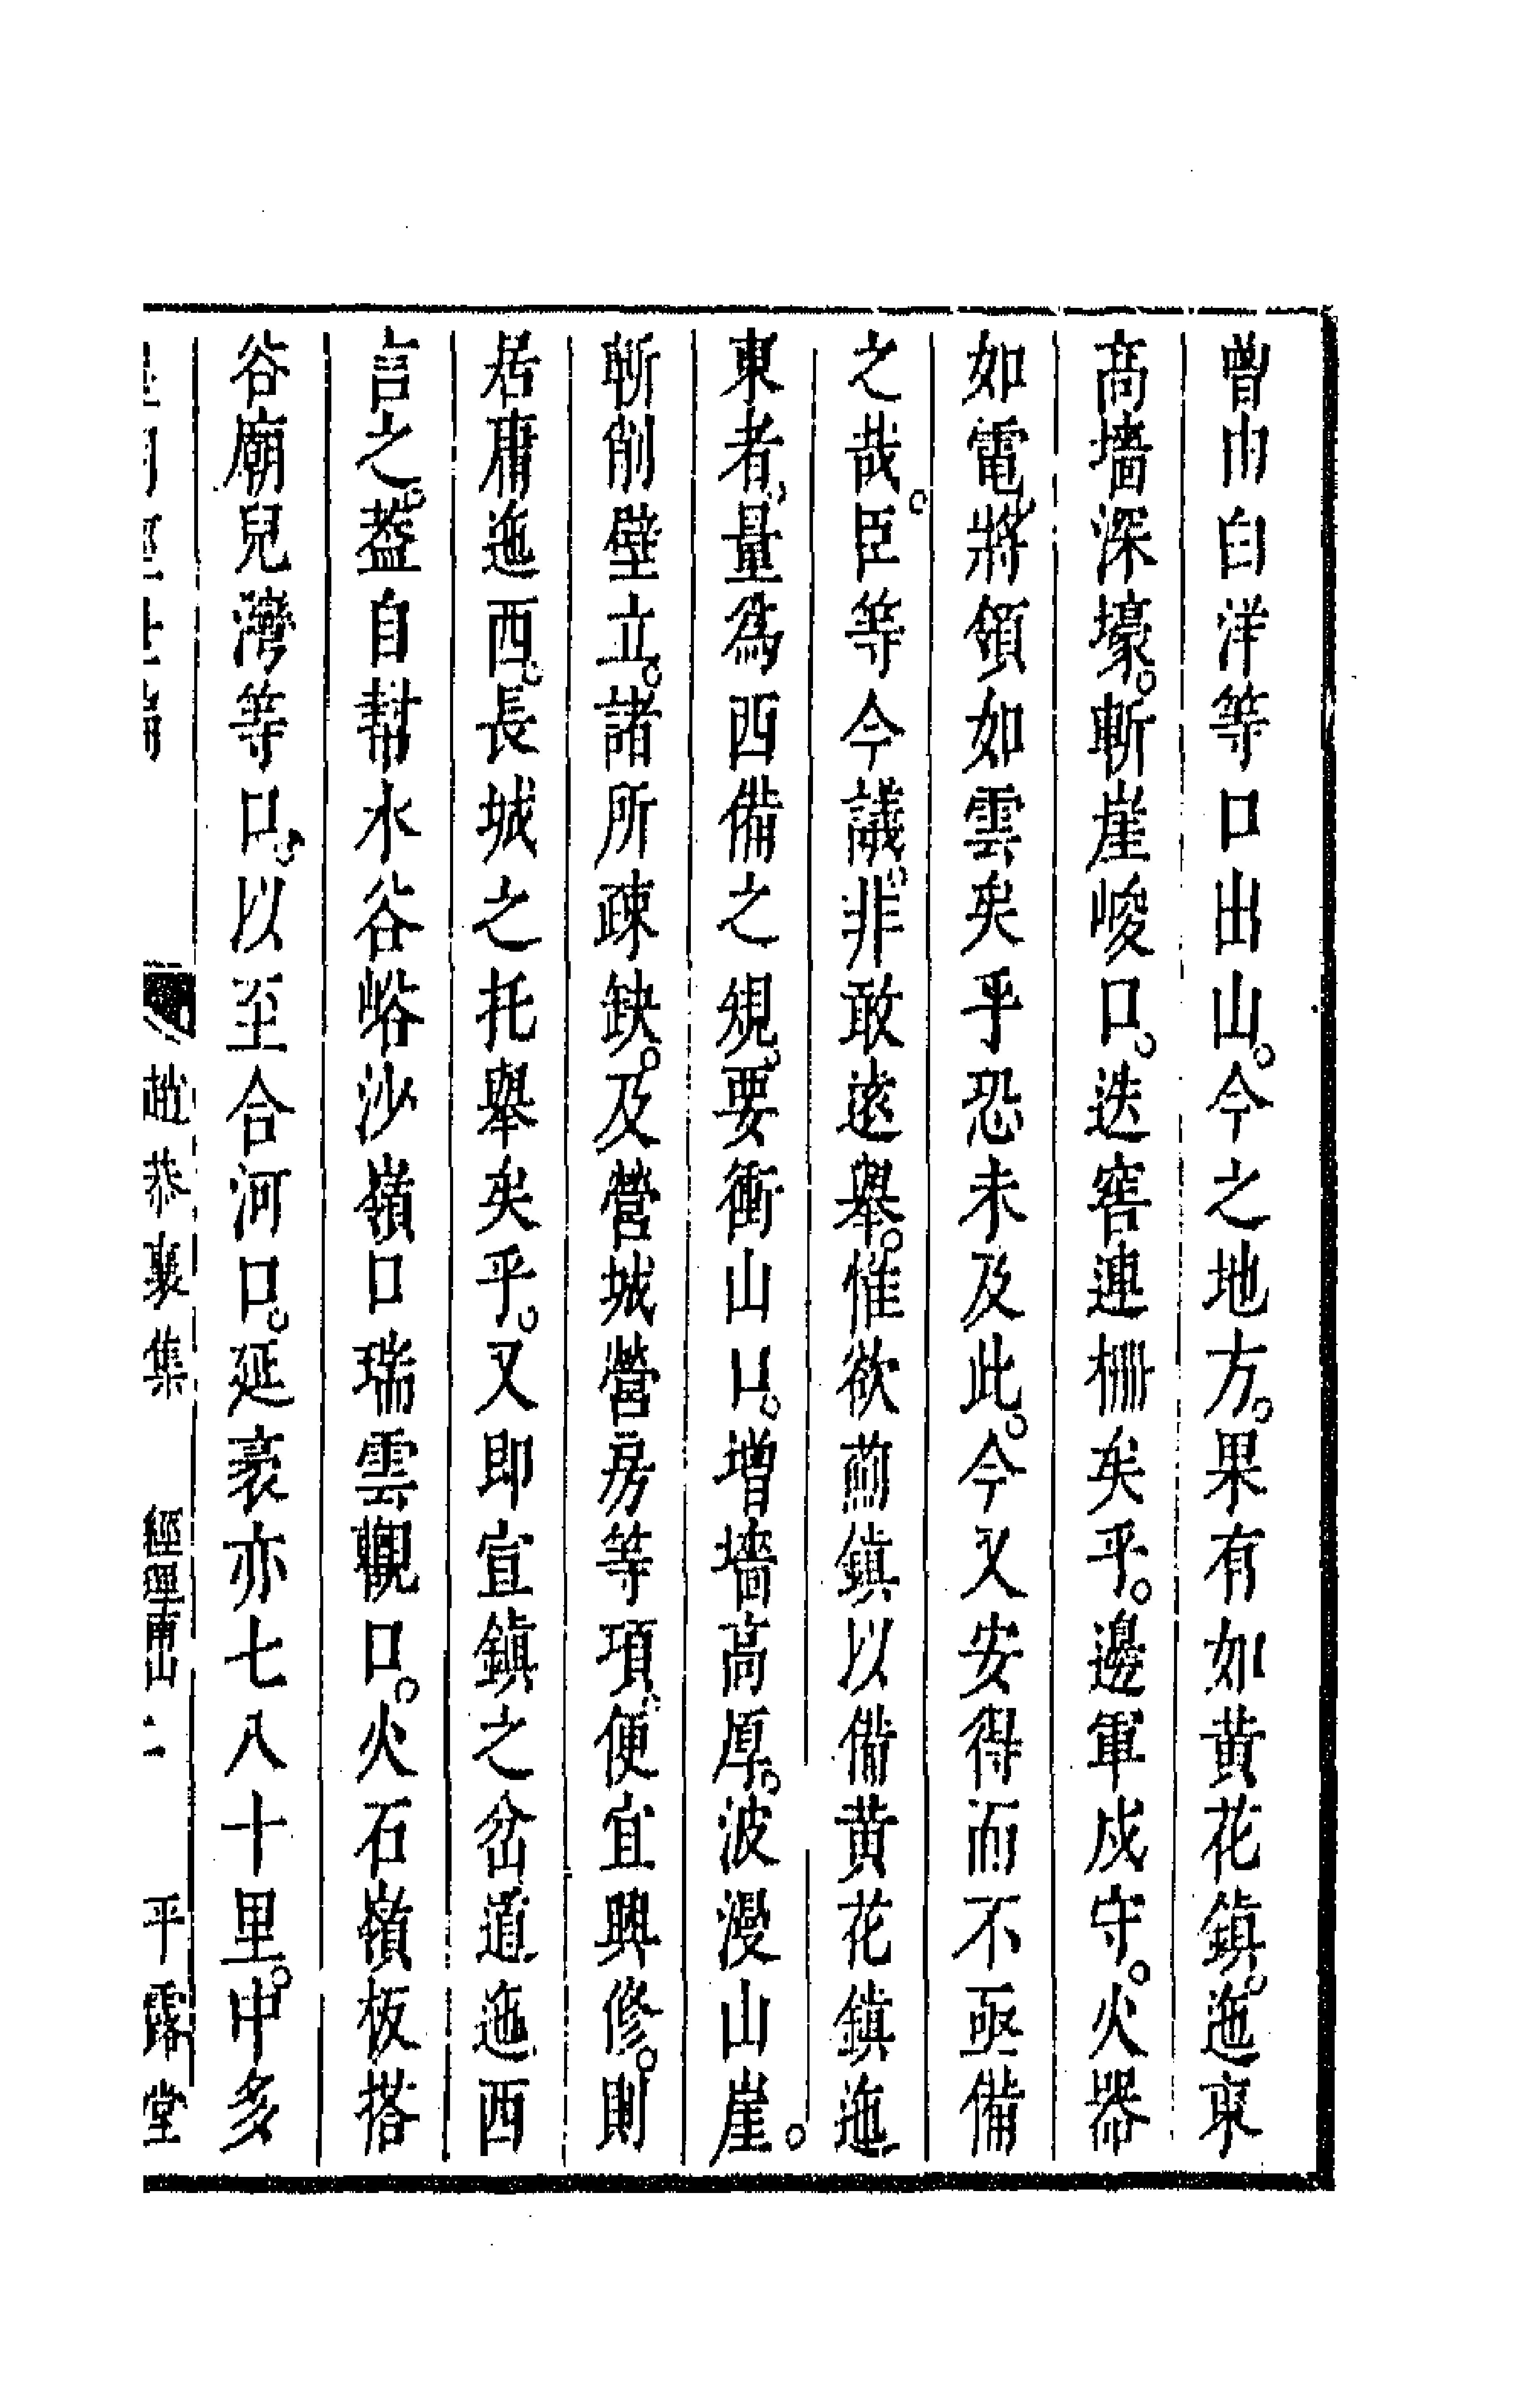 曾由白洋等口出山。今之地方。果有如黃花鎮。迤東
高墻深壕。斬崖峻口。迭窖連柵矣乎。邊軍戍守。火器
如電、將領如雲矣乎恐未及此。今又安得而不亟備
之哉。臣等今議、非敢遠舉。惟欲薊鎮以備黃花鎮迤
東者、量為西備之規。要衝山口。增墻高厚。波漫山崖。
斬削壁立。諸所疎缺。及營城營房等項、便宜興修。則
居庸迤西。長城之托舉矣乎。又即宣鎮之岔道迤西
言之。葢自幇水谷峪沙嶺口瑞雲觀口。火石嶺板搭
谷廟兒灣等口。以至合河口。延袤亦七八十里。中多
皇明經世編 趙恭襄集 經理東西山二 平露堂